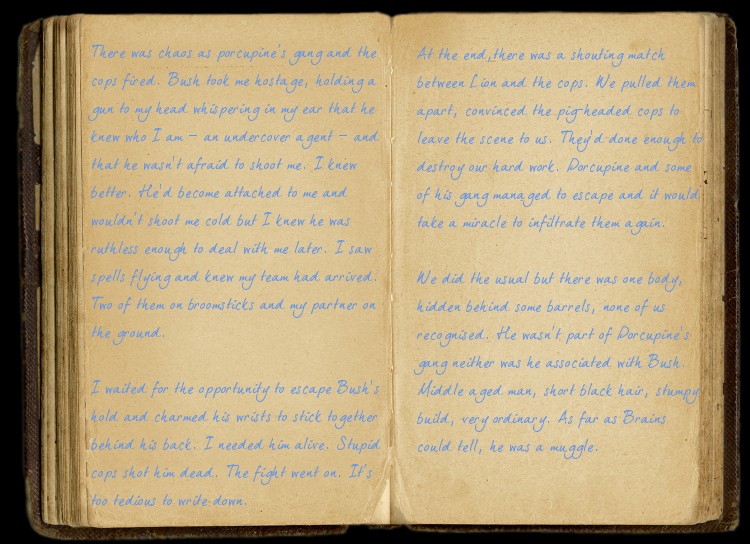 There was chaos as porcupine's gang and the
cops fired. Bush took me hostage, holding a
gun to my head whispering in my ear that he
knew who I am – an undercover agent – and
that he wasn't afraid to shoot me. I knew
better. He'd become attached to me and
wouldn't shoot me cold but I knew he was
ruthless enough to deal with me later. I saw
spells flying and knew my team had arrived.
Two of them on broomsticks and my partner on
the ground.
I waited for the opportunity to escape Bush's
hold and charmed his wrists to stick together
behind his back. I needed him alive. Stupid
cops shot him dead. The fight went on. It's
too tedious to write down.
At the end, there was a shouting match
between Lion and the cops. We pulled them
apart, convinced the pig-headed cops to
leave the scene to us. They'd done enough to
destroy our hard work. Porcupine and some
of his gang managed to escape and it would
take a miracle to infiltrate them again.
We did the usual but there was one body,
hidden behind some barrels, none of us
recognised. He wasn't part of Porcupine's
gang neither was he associated with Bush.
Middle aged man, short black hair, stumpy
build, very ordinary. As far as Brains
could tell, he was a muggle.